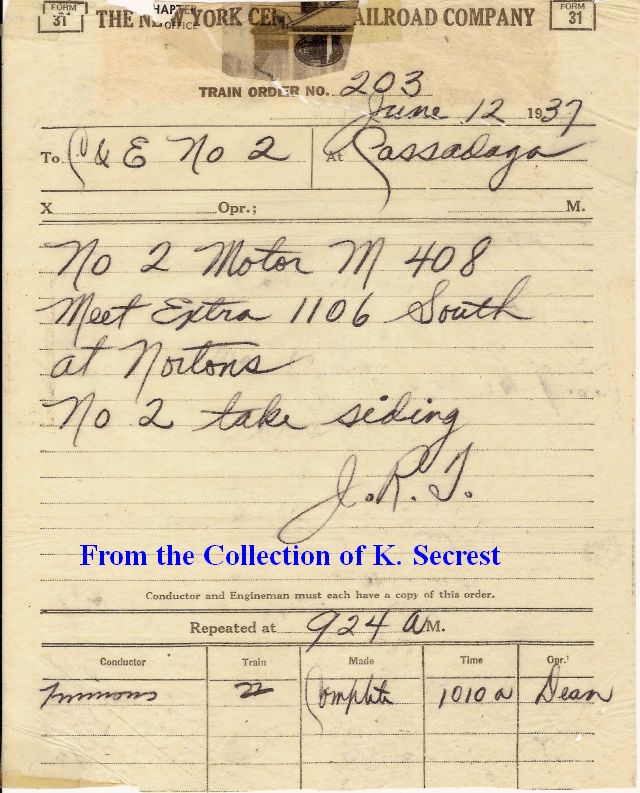 FORM 31 THE NEW YORK CEN AILROAD COMPANY FORM 31
HAPTER
OFFICE
TRAIN ORDER NO. 203
June 12 1937
To C & E No 2 At Cassadaga
X Opr.; M.
No 2 Motor M 408
Meet Extra 1106 South
at Nortons
No 2 take siding
J. R. T.
From the Collection of K. Secrest
Conductor and Engineman must each have a copy of this order.
Repeated at 924 a M.
Conductor Train Made Time Opr.
Timmons Complete 1010 a Dean